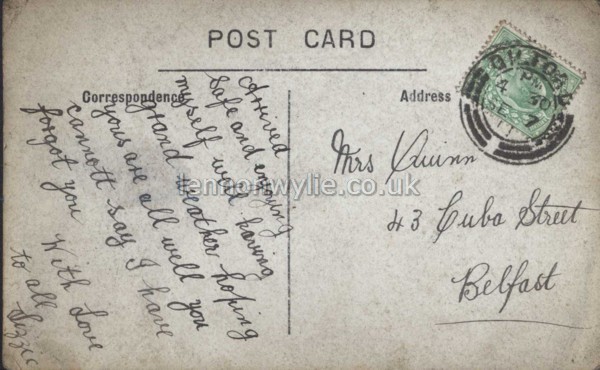 POST CARD
Correspondence
Arrived
Safe and enjoying
myself well having
grand weather hoping
yous are all well you
cannott say I have
forgot you
With Love
to all
Lizzie
Address
Mrs Quinn
43 Cuba Street
Belfast
4 PM
SE 7
11
lennonwylie.co.uk